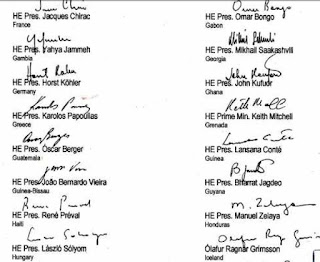 HE Pres. Jacques Chirac
France
HE Pres. Yahya Jammeh
Gambia
HE Pres. Horst Köhler
Germany
HE Pres. Karolos Papoulias
Greece
HE Pres. Óscar Berger
Guatemala
HE Pres. João Bernardo Vieira
Guinea-Bissau
HE Pres. René Préval
Haiti
HE Pres. László Sólyom
Hungary
Omar Bongo
HE Pres. Omar Bongo
Gabon
HE Pres. Mikhail Saakashvili
Georgia
HE Pres. John Kufuor
Ghana
HE Prime Min. Keith Mitchell
Grenada
Lansana Conté
HE Pres. Lansana Conté
Guinea
HE Pres. Bharrat Jagdeo
Guyana
M. Zelaya
HE Pres. Manuel Zelaya
Honduras
Ólafur Ragnar Grimsson
Iceland